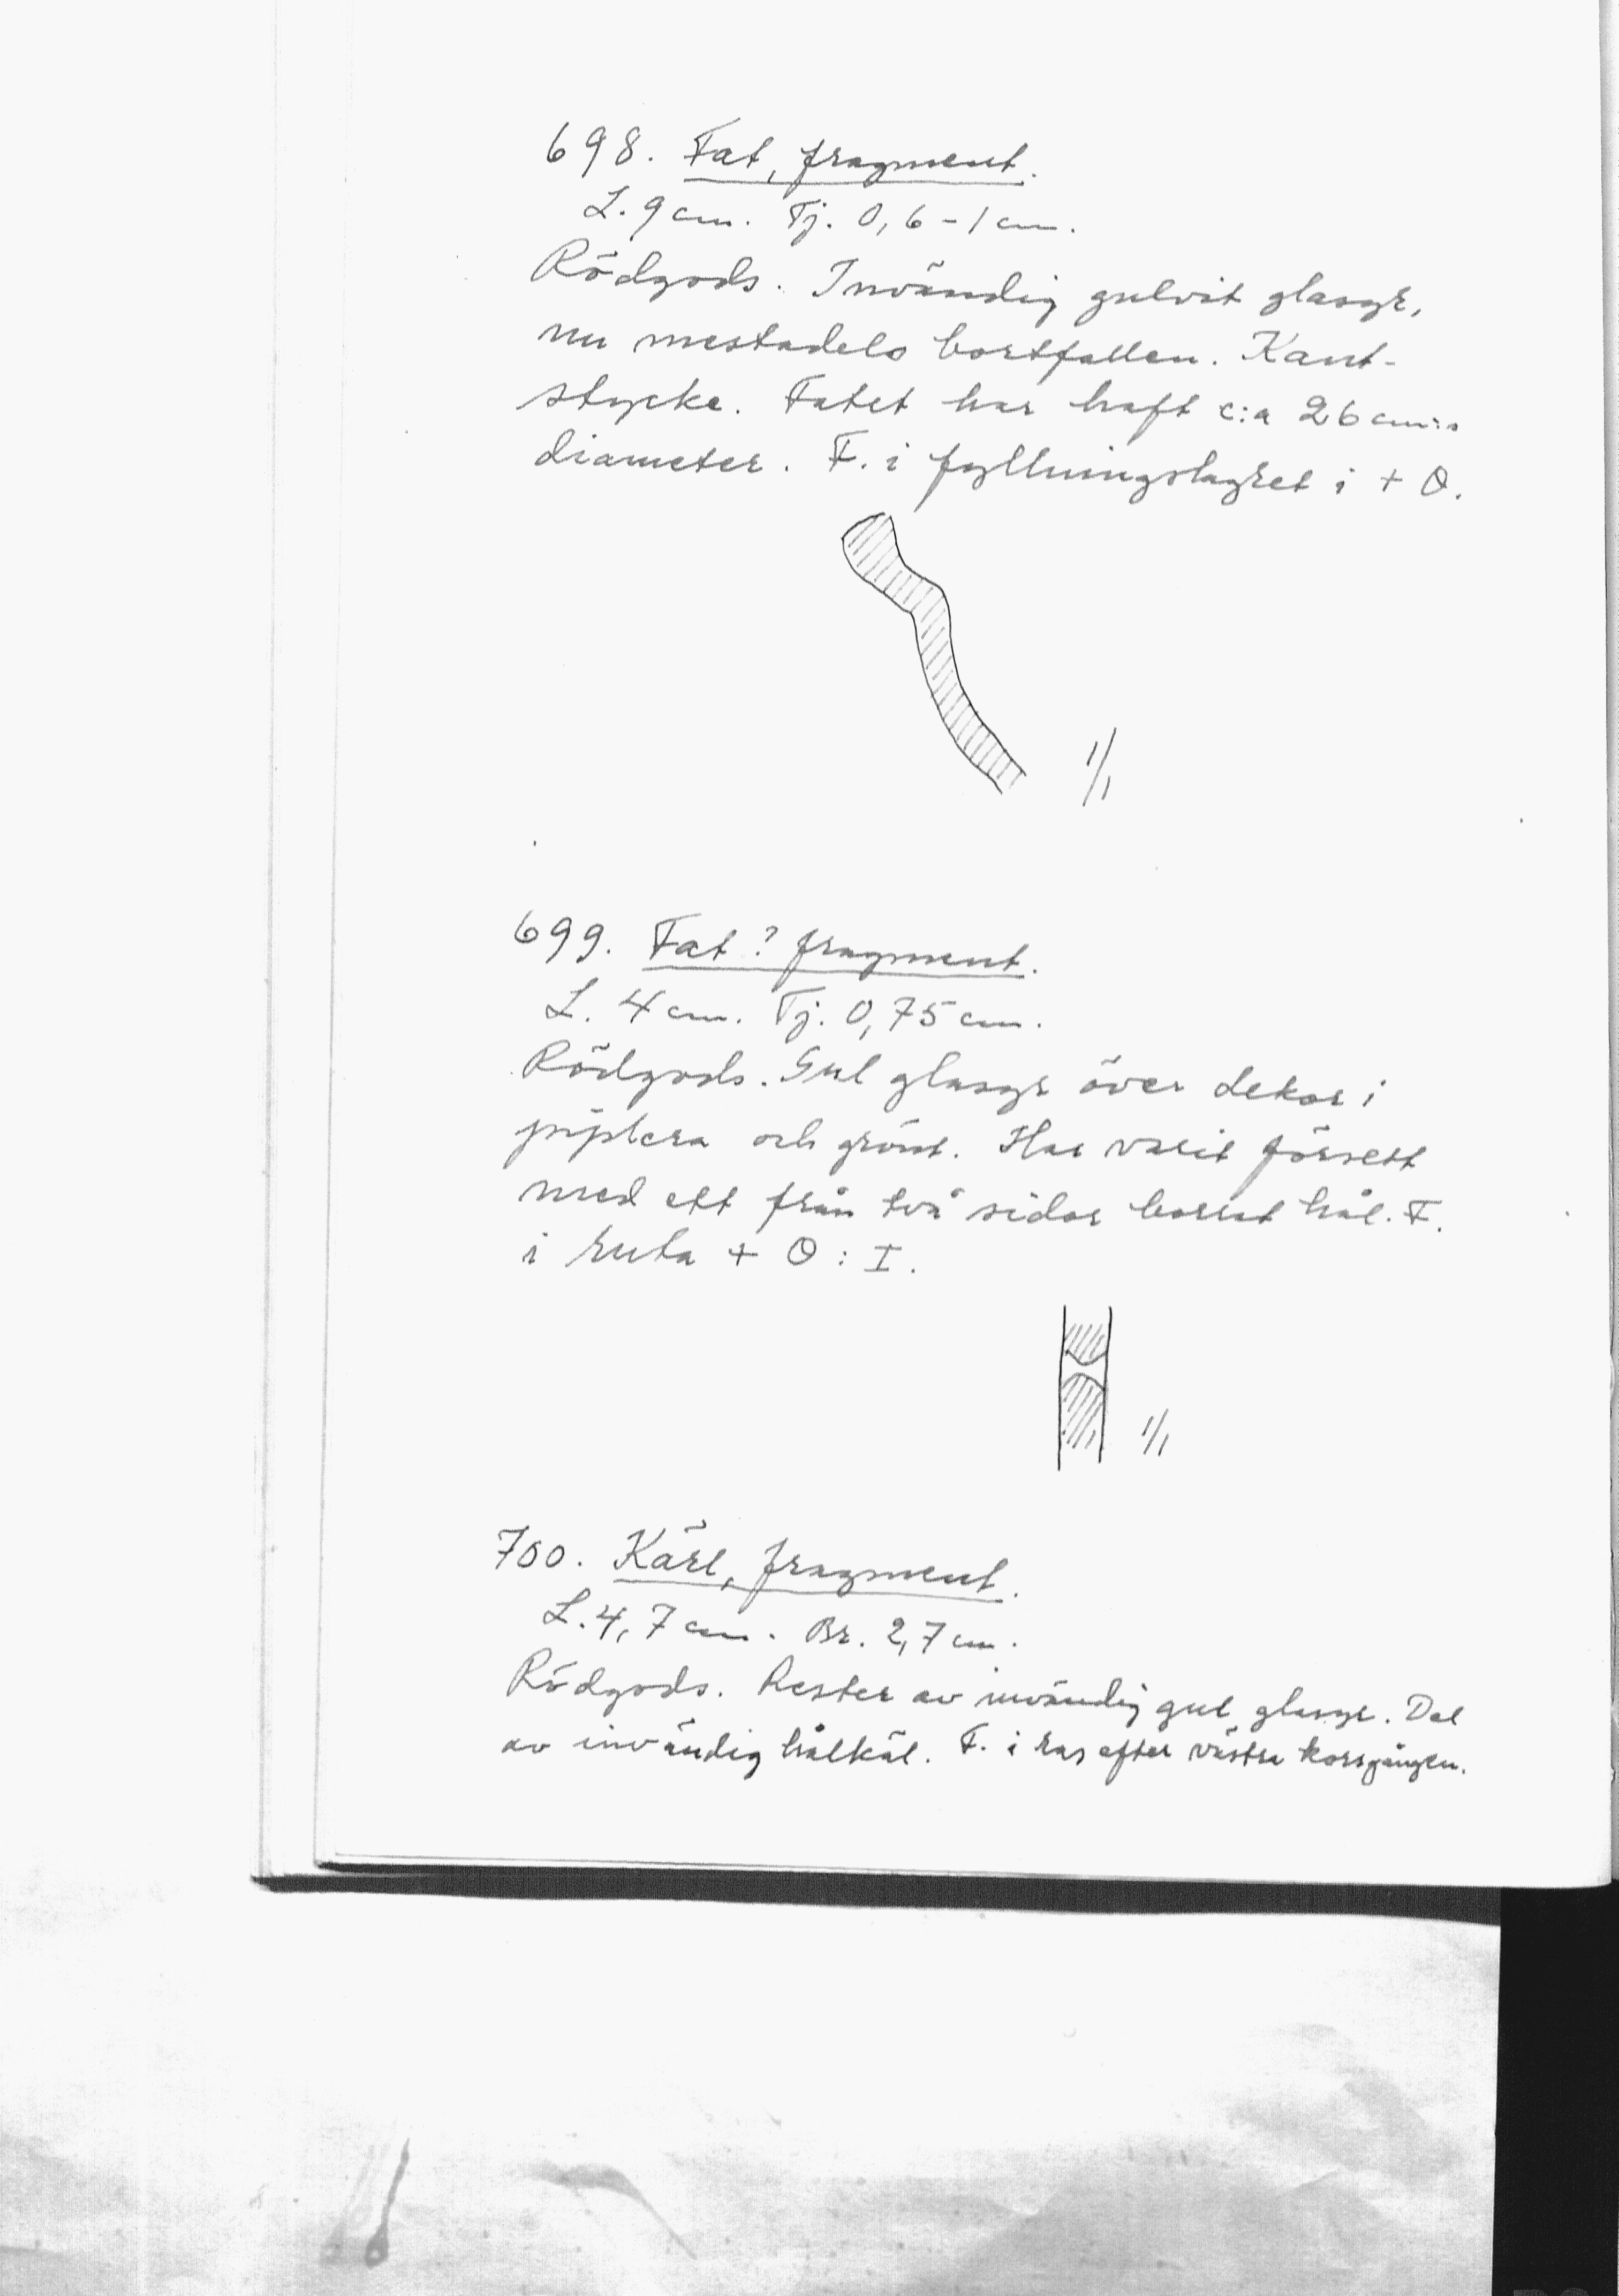 698. Fat, fragment.
L. 9 cm. Tj. 0,6-1 cm.
Rödgods. Invändig gulvit glasyr,
nu mestadels bortfallen. Kant-
stycke. Fatet har haft c:a 26 cm:s
diameter. F. i fyllningslagret i + O.
1/1
699. Fat? fragment.
L. 4 cm. Tj. 0,75 cm.
Rödgods. Gul glasyr över dekor i
piplera och grönt. Har varit försett
med ett från två sidor borrat hål. F.
i ruta + O : I.
1/1
700. Kärl, fragment.
L. 4,7 cm. Br. 2,7 cm.
Rödgods. Rester av invändig gul glasyr. Del
av invändig hålkäl. F. i ras efter västra korsgången.